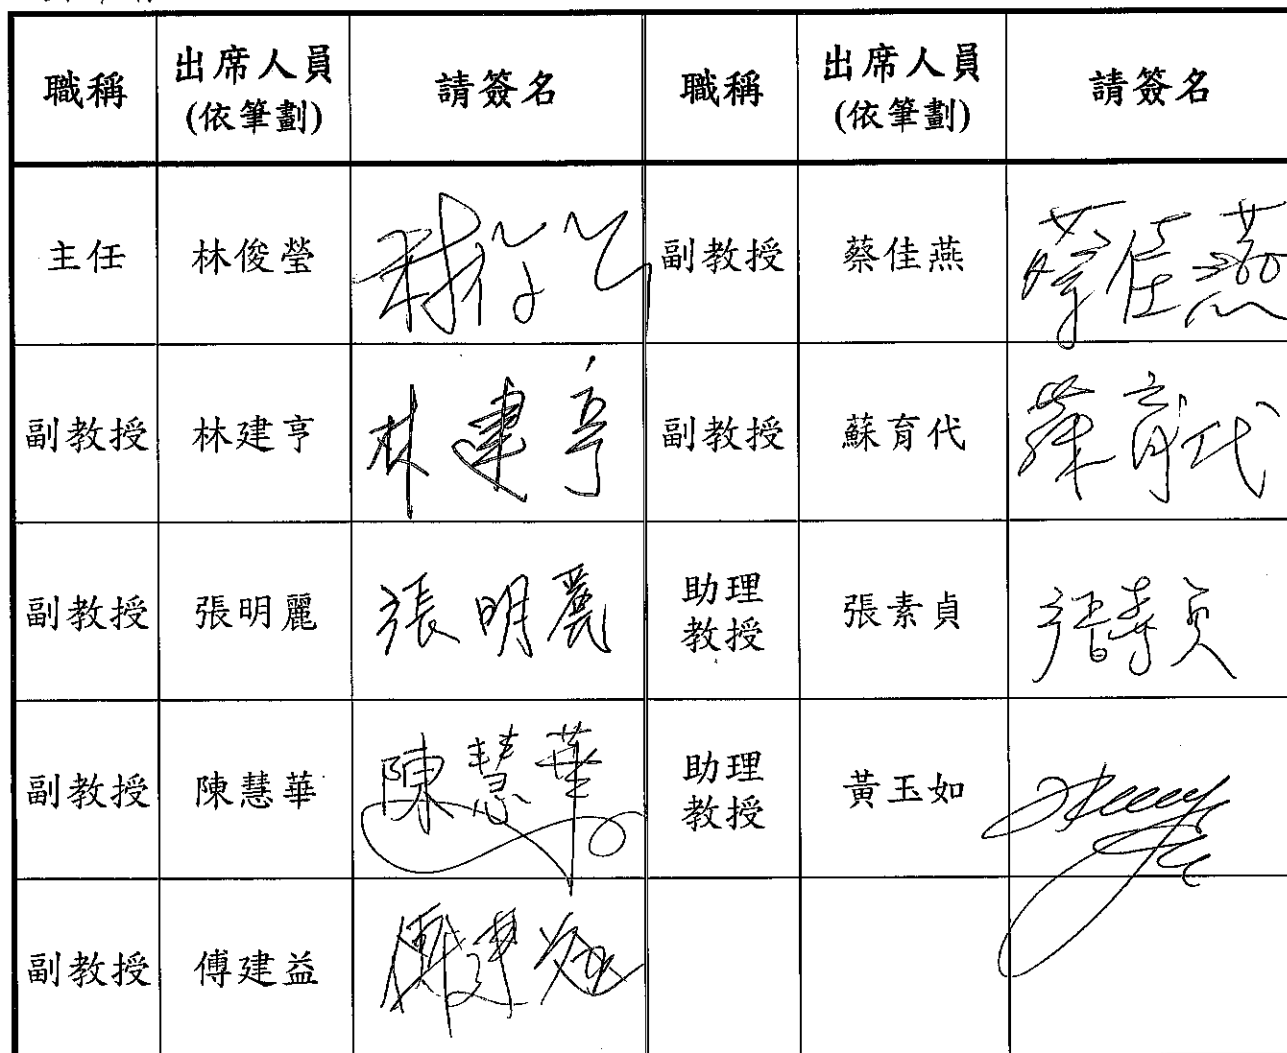 職稱 出席人員 請簽名 職稱 出席人員 請簽名
(依筆劃) (依筆劃)
主任 林俊瑩 副教授 蔡佳燕 蔡佳燕
副教授 林建亨 林建亨 副教授 蘇育代 蘇育代
副教授 張明麗 張明麗 助理教授 張素貞 張素貞
副教授 陳慧華 陳慧華 助理教授 黃玉如
副教授 傅建益 傅建益